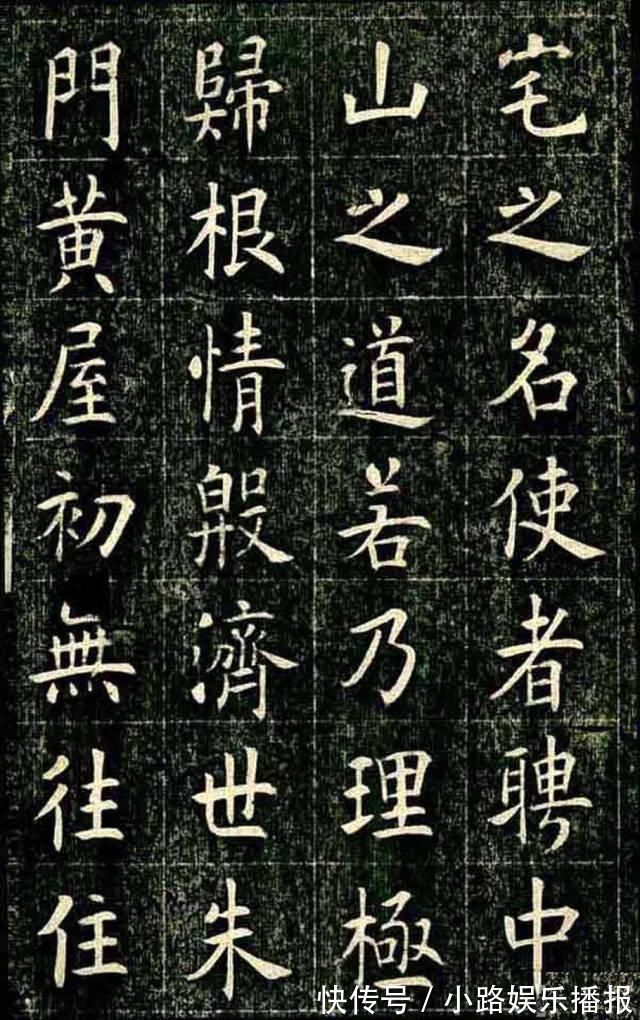 宅之名使者聘中
山之道若乃理極
歸根情殷濟世朱
門黃屋初無往住
快传号 / 小路娱乐播报